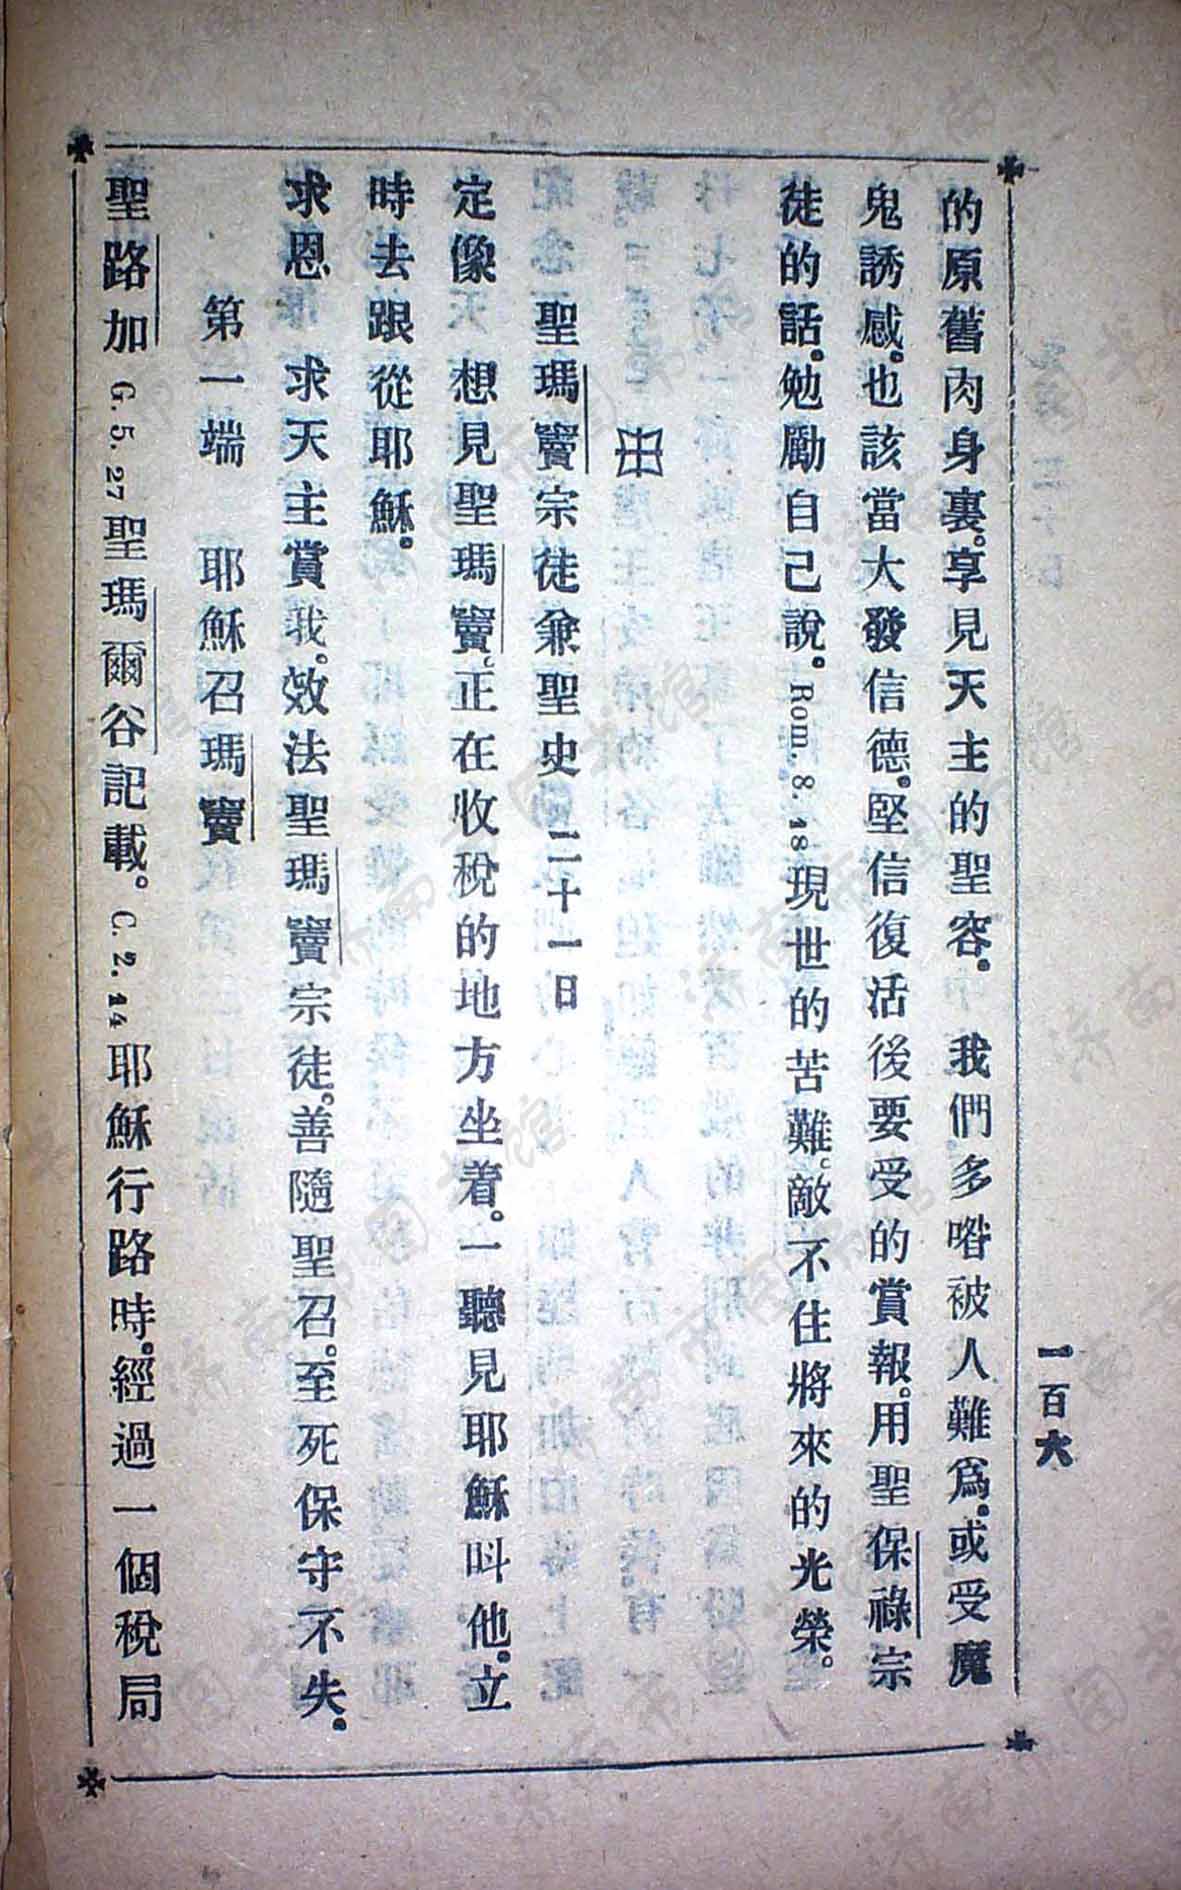 一百六
的原舊肉身裏。享見天主的聖容。 我們多喒被人難爲。或受魔
鬼誘感。也該當大發信德。堅信復活後要受的賞報。用聖保祿宗
徒的話。勉勵自己說。Rom. 8. 18現世的苦難。敵不住將來的光榮。
聖瑪竇宗徒兼聖史 二十一日
定像 想見聖瑪竇。正在收稅的地方坐着。一聽見耶穌呌他。立
時去跟從耶穌。
求恩 求天主賞我。效法聖瑪竇宗徒。善隨聖召。至死保守不失。
第一端 耶穌召瑪竇
聖路加 G. 5. 27聖瑪爾谷記載。C. 2. 14耶穌行路時。經過一個稅局